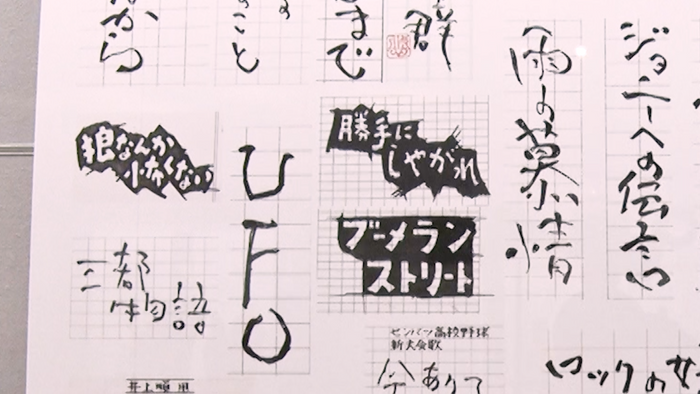 から
こと
まで
群
狼なんか
怖くない
UFO
勝手に
しやがれ
ブーメラン
ストリート
三都
物語
雨の慕情
ジョニーへの伝言
センバツ高校野球
新大会歌
今ありて
ロックの
井上順用